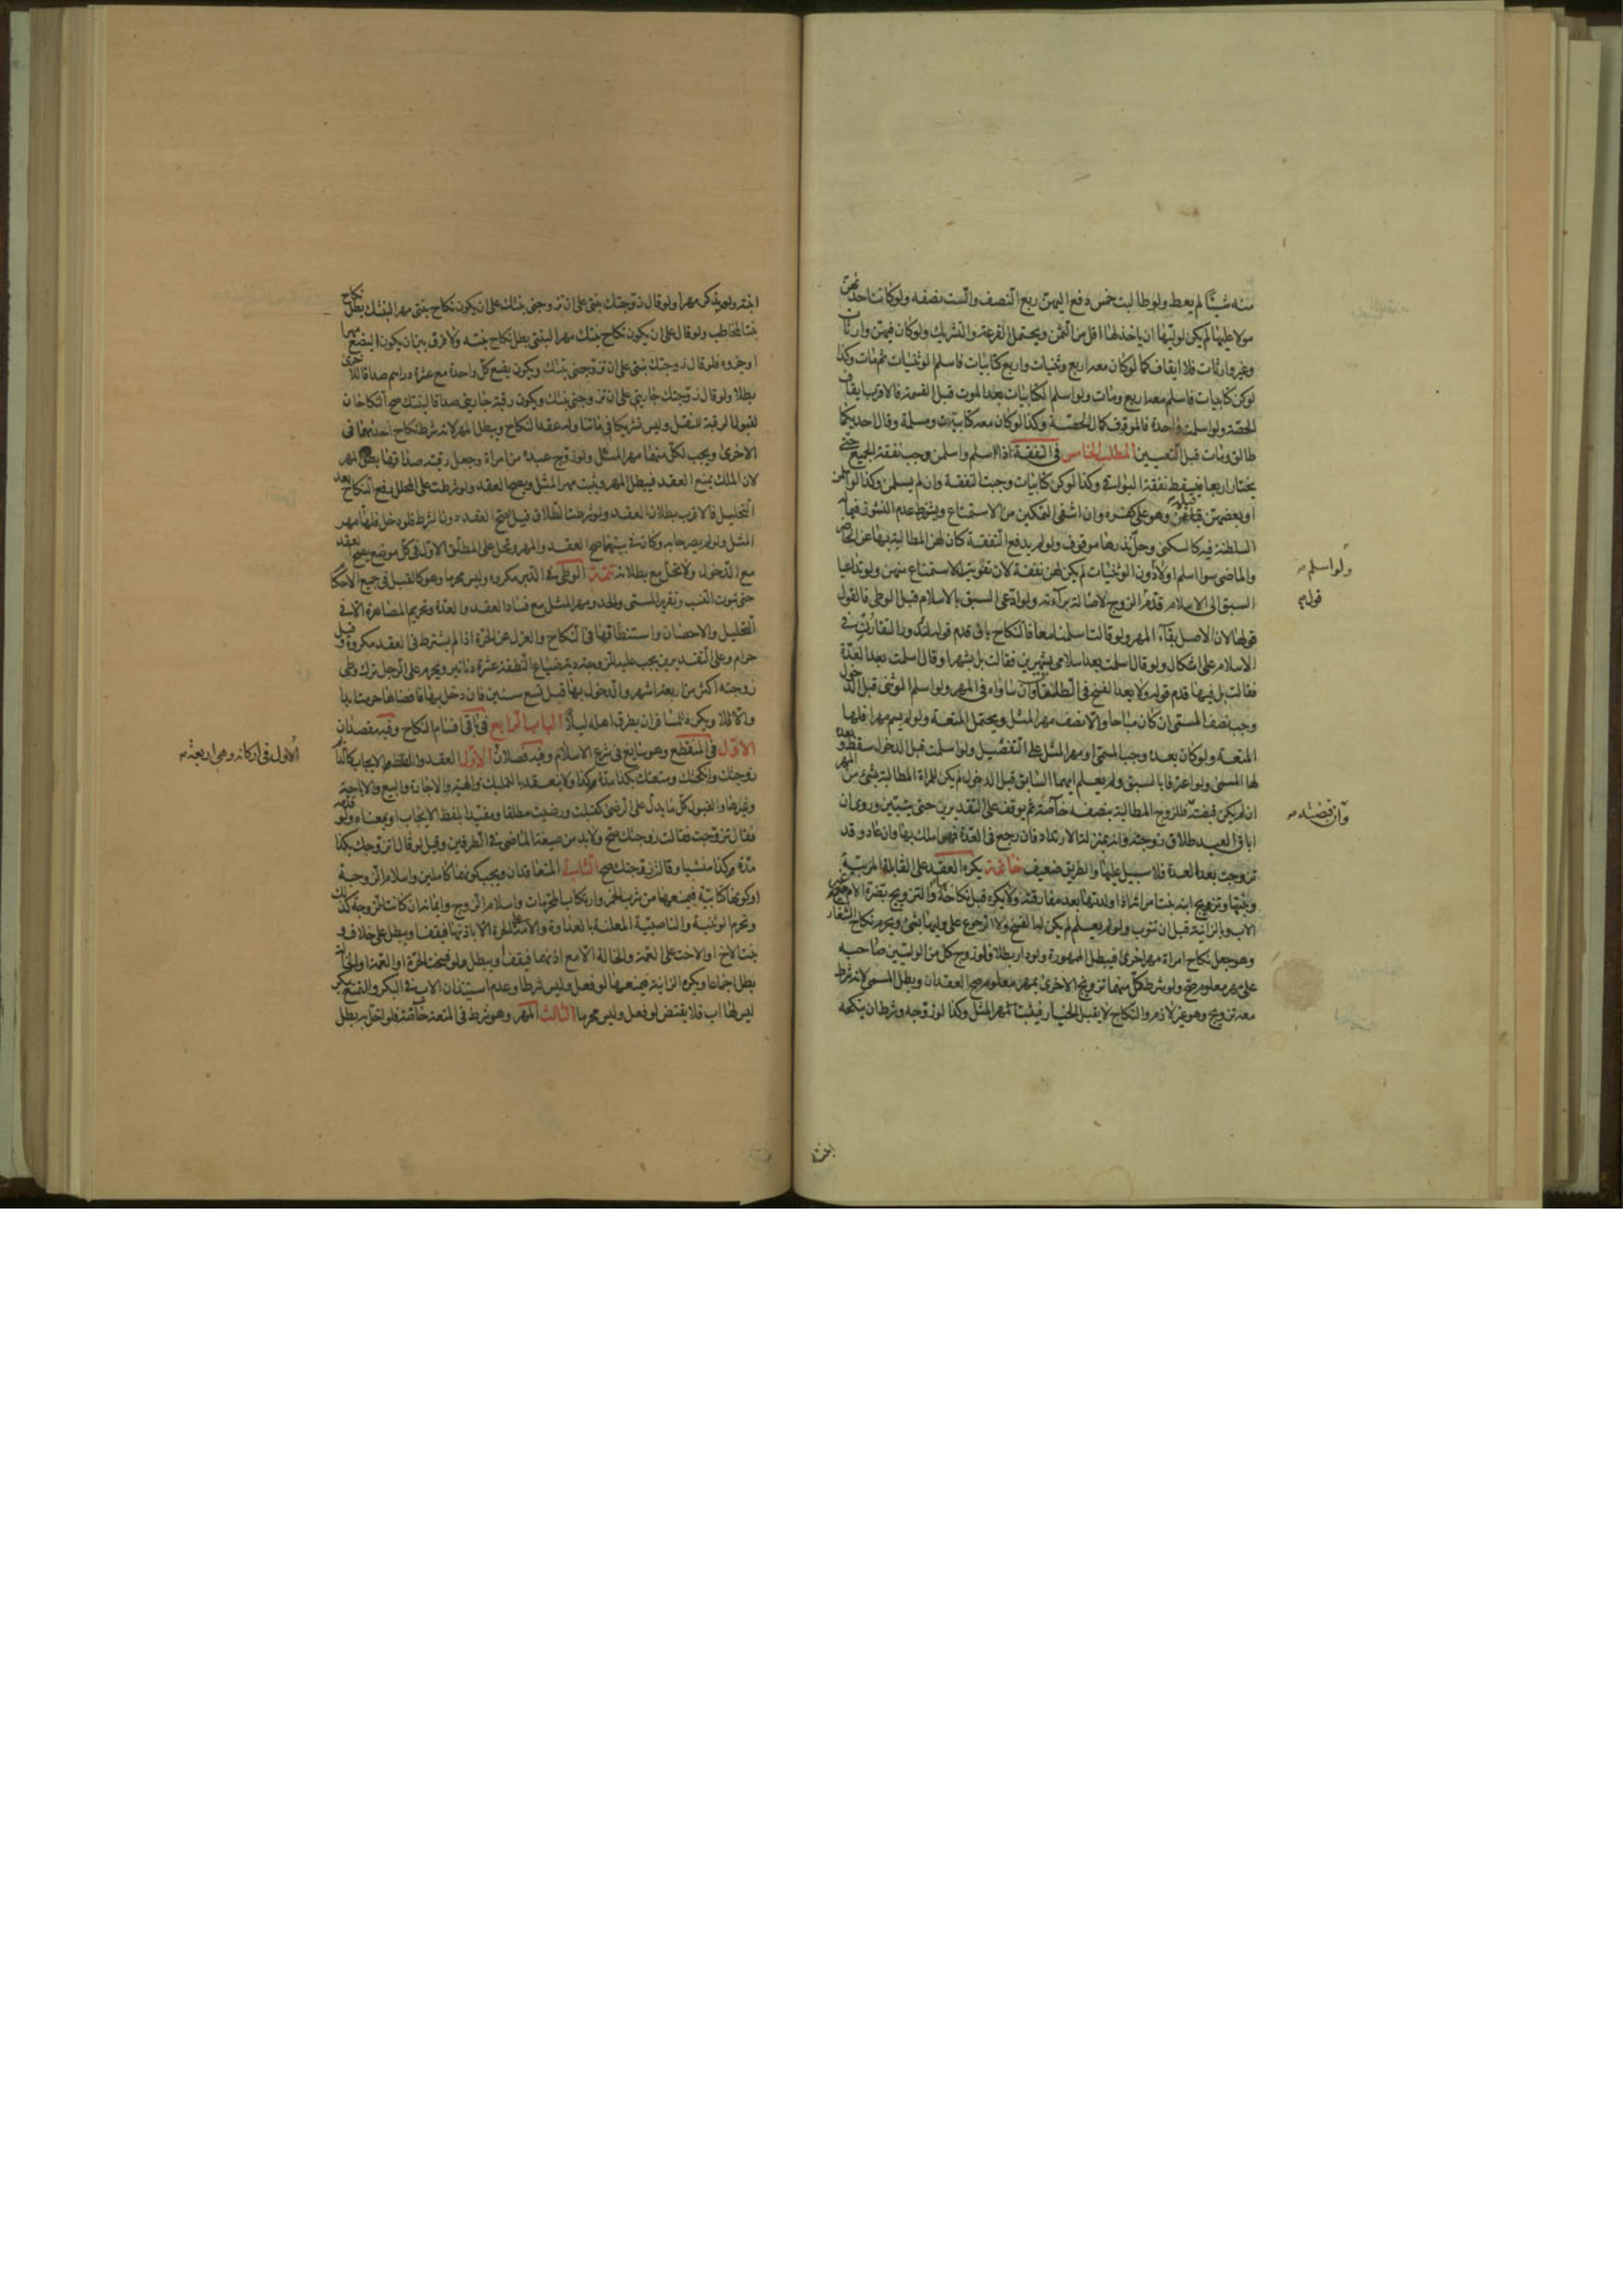 منه شيئا لم يعط ولو طالبت خمس دفع اليهن ربع النصف والست نصفه ولو كانت احداهن
مولا عليها لم يكن لوليها ان ياخذ لها اقل من الثمن ويحتمل القرعة والتشريك ولو كان فيهن وارثات
وغير وارثات فلا ايقاف كما لو كان معه اربع وثنيات واربع كتابيات فاسلم الوثنيات ثم مات وكذا
لو كن كتابيات فاسلم معه اربع ومات ولو اسلم الكتابيات بعد الموت قبل القسمة فالاقرب ايقاف
الحصة ولو اسلمت واحدة فالموقوف كمال الحصة وكذا لو كان معه كتابية ومسلمة وقال احديكما
طالق ومات قبل التعيين المطلب الخامس في النفقة اذا اسلم واسلمن وجب نفقة الجميع حتى
يختار اربعا فيسقط نفقة البواقي وكذا لو كن كتابيات وجبت النفقة وان لم يسلمن وكذا لو اسلمن
او بعضهن قبله وهو على كفره وان انتفى التمكين من الاستمتاع ويشترط عدم النشوز فيما له
السلطنة فيه كالسكنى وحل نذرها موقوف ولو لم يدفع النفقة كان لهن المطالبة بها عن الحاضر
والماضي سوا اسلم او لا دون الوثنيات لم يكن لهن نفقة لان تفويت الاستمتاع منهن ولو تداعيا
السبق الى الاسلام قدم الزوج لاصالة براءته ولو ادعى السبق بالاسلام قبل الوطي فالقول
قولها لان الاصل بقاء المهر ولو قالت اسلمنا معا فالنكاح باق قدم قوله لندور التقارن في
الاسلام على اشكال ولو قال اسلمت بعد اسلامي بشهرين فقالت بل بشهر او قال اسلمت بعد العدة
فقالت بل فيها قدم قوله ولا يعد الفسخ في الطلاق وان ساواه في المهر ولو اسلم الوثني قبل الدخول
وجب نصف المسمى ان كان مباحا والا نصف مهر المثل ويحتمل المتعة ولو لم يسم مهرا فلها
المتعة ولو كان بعده وجب المسمى او مهر المثل على التفصيل ولو اسلمت قبل الدخول سقط وبعده
لها المسمى ولو اعترفا بالسبق ولم يعلم ايهما السابق قبل الدخول لم يكن للمراة المطالبة بشيء من المهر
ان لم يكن قبضته فللزوج المطالبة بنصفه خاصة ثم يوقف على التقديرين حتى يتبين وروي ان
اباق العبد طلاق زوجته وانه بمنزلة الارتداد فان رجع في العدة فهو املك بها وان عاد وقد
تزوجت بعد العدة فلا سبيل عليها والطريق ضعيف خاتمة يكره العقد على القابلة المربية
وبنتها وتزويج ابنه بنت امراته اذا ولدتها بعد مفارقته ولا يكره قبل نكاحه والتزويج بضرة الام مع غير
الاب وبالزانية قبل ان تتوب ولو لم يعلم لم يكن له الفسخ ولا الرجوع على وليها بشيء ويحرم نكاح الشغار
وهو جعل نكاح امراة مهر اخرى فيبطل الممهورة ولو دار بطلا ولو زوج كل من الوليين صاحبه
على مهر معلوم صح ولو شرط كل منهما تزويج الاخرى بمهر معلوم صح العقدان وبطل المسمى لانه شرط
معه تزويج وهو غير لازم والنكاح لا يقبل الخيار فيثبت مهر المثل وكذا لو زوجه وشرط ان ينكحه
ولو اسلم
قوله
وان قبضته
ابنته
ابنته ولم يذكر مهرا ولو قال زوجتك بنتي على ان تزوجني بنتك على ان يكون نكاح بنتي مهرا لبنتك بطل نكاح
بنت المخاطب ولو قال على ان يكون نكاح بنتك مهرا لبنتي بطل نكاح بنته ولا فرق بين ان يكون البضع مهرا
او جزوه فلو قال زوجتك بنتي على ان تزوجني بنتك ويكون بضع كل واحدة مع عشرة دراهم صداقا للاخرى
بطلا ولو قال زوجتك جاريتي على ان تزوجني بنتك ويكون رقبة جاريتي صداقا لبنتك صح النكاحان
لقبول الرقبة للنقل وليس تشريكا فيما تناوله عقد النكاح ويبطل المهر لانه شرط نكاح احديهما في
الاخرى ويجب لكل منهما مهر المثل ولو زوج عبده من امراة وجعل رقبته صداقها بطل المهر
لان الملك يمنع العقد فيبطل المهر ويثبت مهر المثل ويصح العقد ولو شرطت على المحلل رفع النكاح بعد
التحليل فالاقرب بطلان العقد ولو شرطت الطلاق قيل صح العقد دون الشرط فلو دخل فلها مهر
المثل ولو لم يصرحا به وكان في نيتهما صح العقد والمهر وتحل على المطلق الاول في كل موضع يصح العقد
مع الدخول ولا تحل مع بطلانه تتمة الوطي في الدبر مكروه وليس محرما وهو كالقبل في جميع الاحكام
حتى ثبوت النسب وتقرير المسمى والحد ومهر المثل مع فساد العقد والعدة وتحريم المصاهرة الا في
التحليل والاحصان واستنطاقها في النكاح والعزل عن الحرة اذا لم يشترط في العقد مكروه وقيل
حرام وعلى التقديرين يجب عليه للزوجة دية ضياع النطفة عشرة دنانير ويحرم على الرجل ترك وطي
زوجته اكثر من اربعة اشهر والدخول بها قبل تسع سنين فان دخل بها فافضاها حرمت ابدا
والا فلا ويكره للمسافر ان يطرق اهله ليلا الباب الرابع في باقي اقسام النكاح وفيه مقصدان
الاول في المنقطع وهو سايغ في شرع الاسلام وفيه فصلان الاول العقد والفاظه الايجاب كالنكاح
زوجتك وانكحتك ومتعتك بكذا مدة كذا ولا ينعقد بالتمليك والهبة والاجارة والبيع والاباحة
وغيرها والقبول كل ما يدل على الرضى كقبلت ورضيت مطلقا ومقيدا بلفظ الايجاب او بمعناه ولو قدمه
فقال تزوجت فقالت زوجتك صح ولا بد من صيغة الماضي في الطرفين وقيل لو قال اتزوجك بكذا
مدة كذا منشيا وقالت زوجتك صح الثاني المتعاقدان ويجب كونهما كاملين واسلام الزوجة
او كونها كتابية فيمنعها من شرب الخمر وارتكاب المحرمات واسلام الزوج وايمانه ان كانت الزوجة كذلك
وتحرم الوثنية والناصبية المعلنة بالعداوة والامة على الحرة الا باذنها فيقف او يبطل على خلاف و
بنت الاخ او الاخت على العمة والخالة الا مع اذنهما فيقف او يبطل ولو فسخت الحرة او العمة او الخالة
بطل اجماعا ويكره الزانية فيمنعها لو فعل وليس شرطا وعدم استيذان الاب في البكر والتمتع ببكر
ليس لها اب فلا يفتض لو فعل وليس محرما الثالث المهر وهو شرط في المتعة خاصة فلو اخل به بطل
الاول في اركانه وهي اربعة